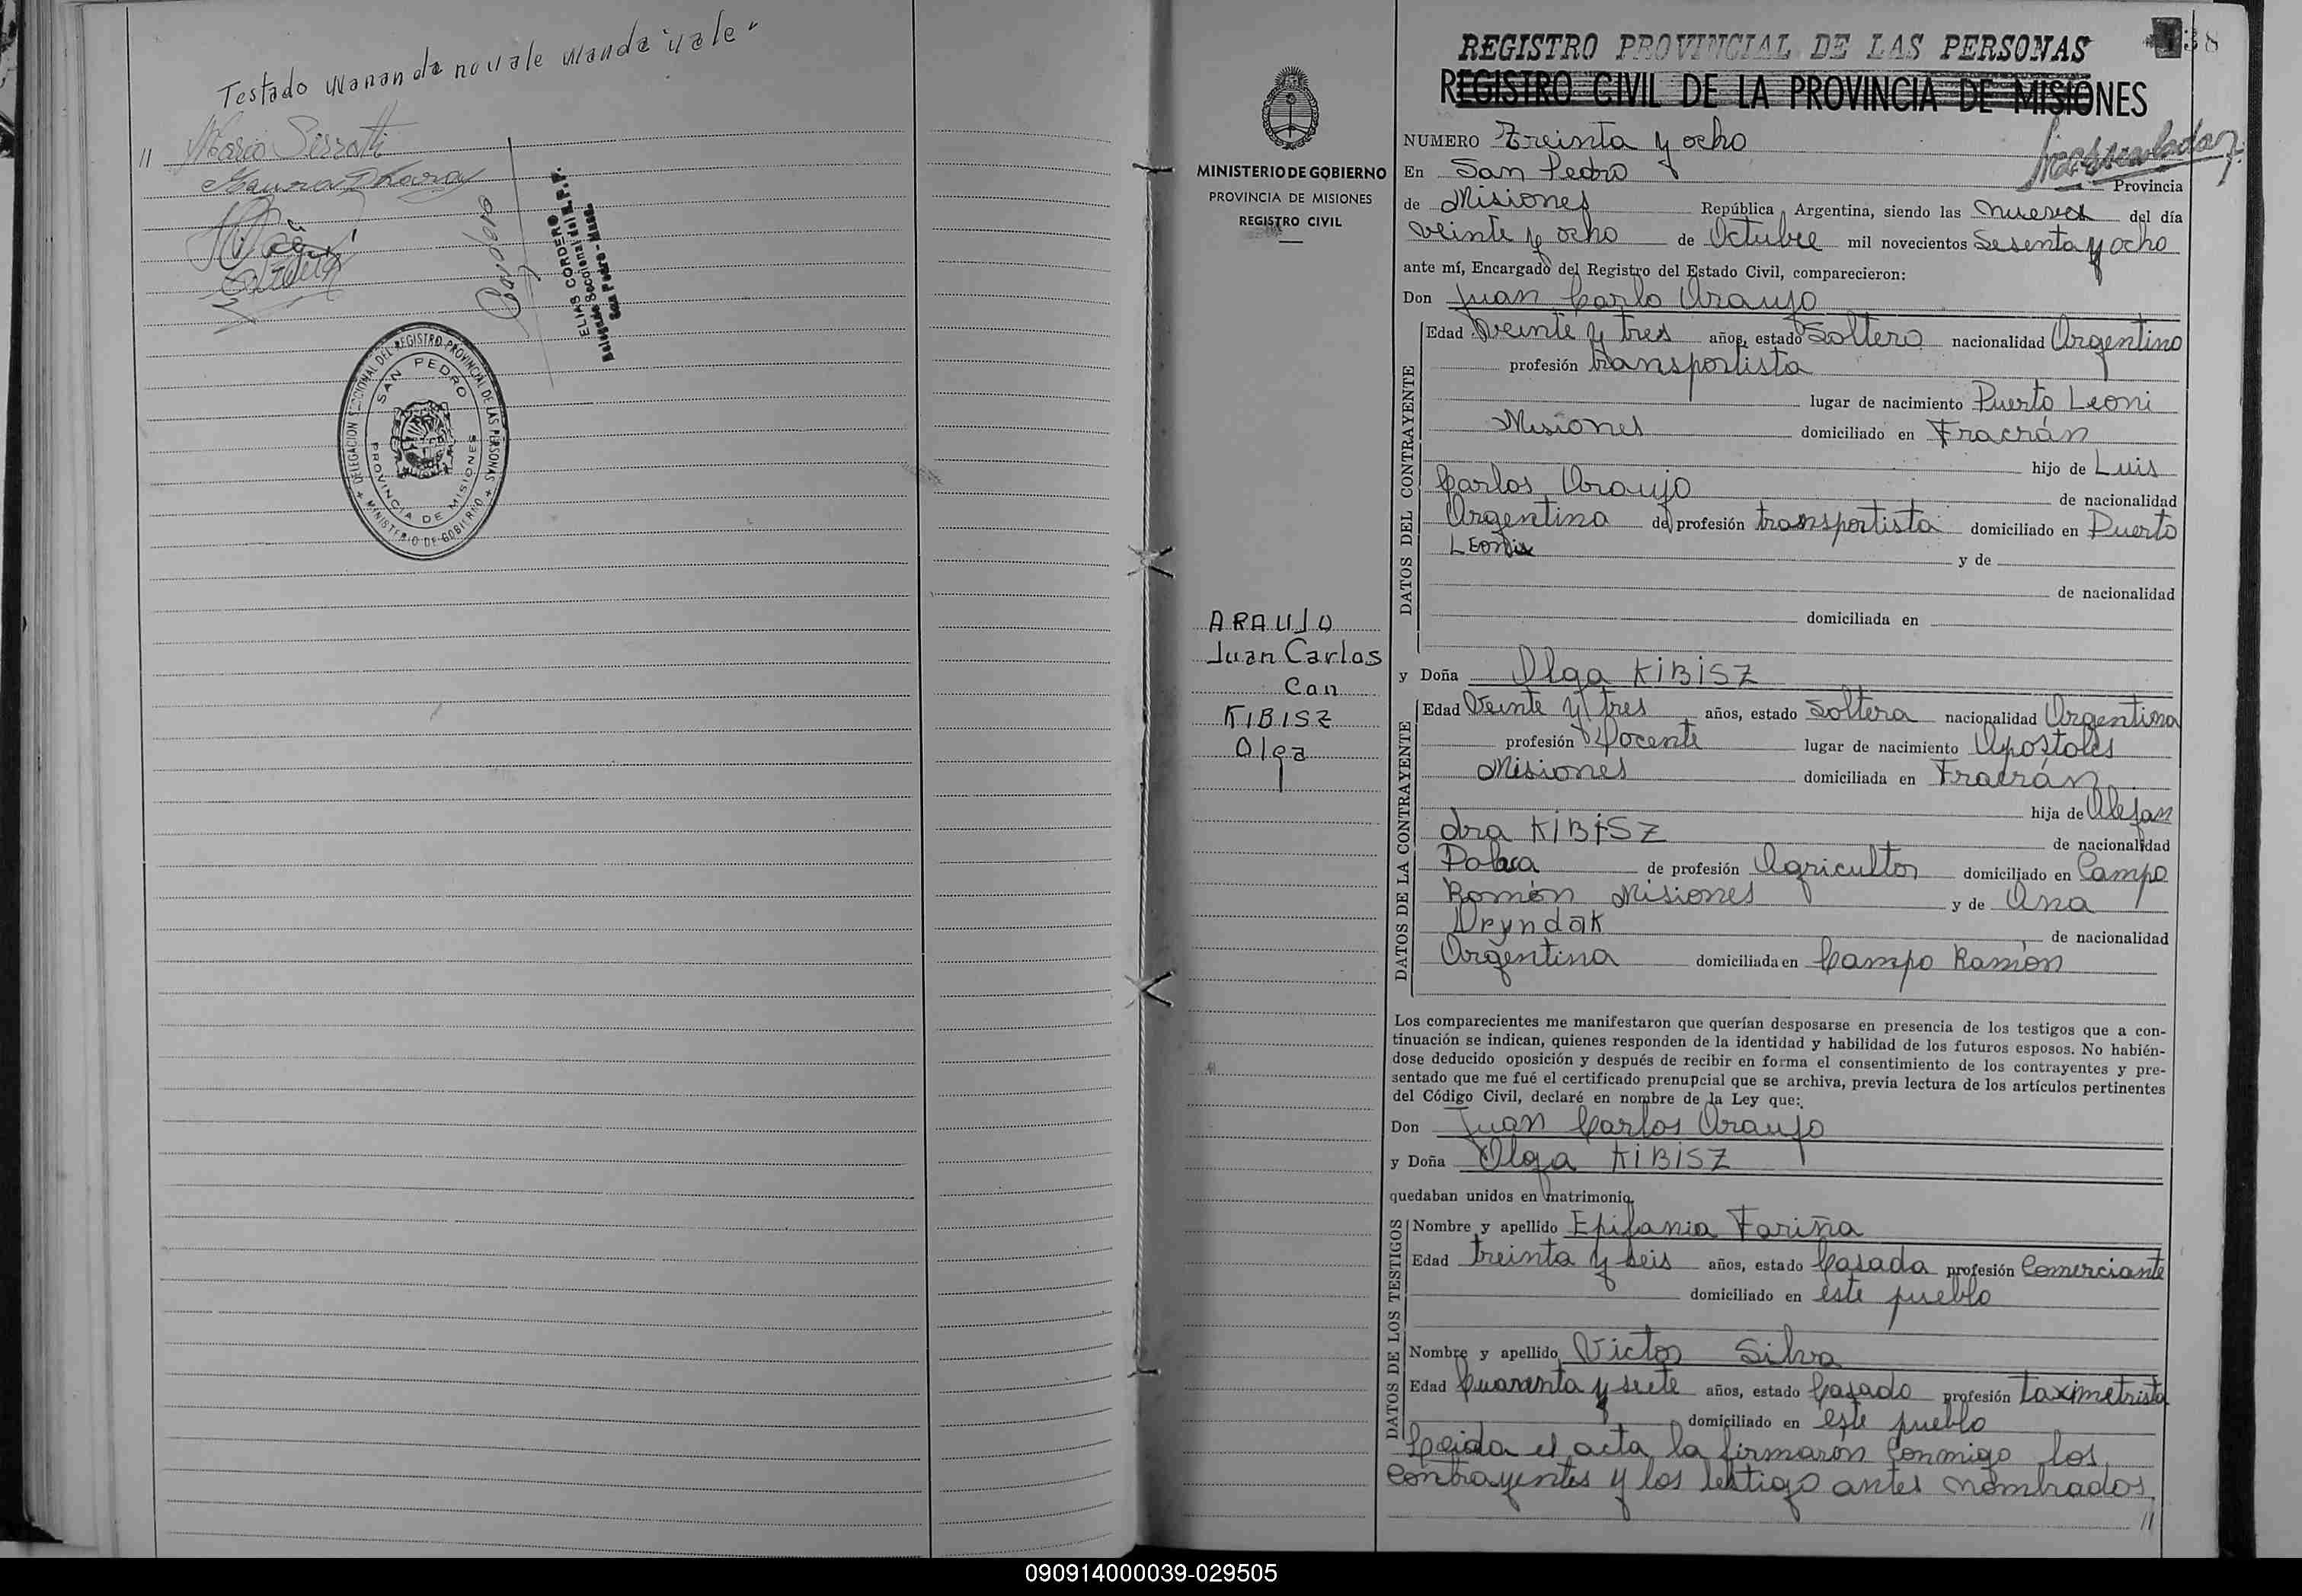 Testado Wananda no vale Wanda "vale"
// Mario
Cordero
ELIAS CORDERO
Delegado Seccional del R.P.P.
San Pedro - Mnes.
+ DELEGACION SECCIONAL DEL REGISTRO PROVINCIAL DE LAS PERSONAS +
MINISTERIO DE GOBIERNO
SAN PEDRO
PROVINCIA DE MISIONES
38
REGISTRO PROVINCIAL DE LAS PERSONAS
REGISTRO CIVIL DE LA PROVINCIA DE MISIONES
MINISTERIO DE GOBIERNO
PROVINCIA DE MISIONES
REGISTRO CIVIL
ARAUJO
Juan Carlos
Con
KIBISZ
Olga
NUMERO Treinta y ocho
En San Pedro Provincia
de Misiones República Argentina, siendo las nueve del día
veinte y ocho de Octubre mil novecientos Sesenta y ocho
ante mí, Encargado del Registro del Estado Civil, comparecieron:
Don Juan Carlo Araujo
DATOS DEL CONTRAYENTE
Edad Veinte y tres años, estado Soltero nacionalidad Argentino
profesión transportista
lugar de nacimiento Puerto Leoni
Misiones domiciliado en Fracrán
hijo de Luis
Carlos Araujo de nacionalidad
Argentina de profesión transportista domiciliado en Puerto
Leoni y de
de nacionalidad
domiciliada en
y Doña Olga KiBiSZ
DATOS DE LA CONTRAYENTE
Edad Veinte y tres años, estado Soltera nacionalidad Argentina
profesión Docente lugar de nacimiento Apostoles
Misiones domiciliada en Fracrán
hija de Alejan
dra KiBiSZ de nacionalidad
Polaca de profesión Agricultor domiciliado en Campo
Ramón Misiones y de Ana
Dryndak de nacionalidad
Argentina domiciliada en Campo Ramón
Los comparecientes me manifestaron que querían desposarse en presencia de los testigos que a con-
tinuación se indican, quienes responden de la identidad y habilidad de los futuros esposos. No habién-
dose deducido oposición y después de recibir en forma el consentimiento de los contrayentes y pre-
sentado que me fué el certificado prenupcial que se archiva, previa lectura de los artículos pertinentes
del Código Civil, declaré en nombre de la Ley que:
Don Juan Carlos Araujo
y Doña Olga KiBiSZ
quedaban unidos en matrimonio.
DATOS DE LOS TESTIGOS
Nombre y apellido Epifania Fariña
Edad treinta y seis años, estado Casada profesión Comerciante
domiciliado en este pueblo
Nombre y apellido Victor Silva
Edad Cuarenta y siete años, estado Casado profesión taximetrista
domiciliado en este pueblo
Leida el acta la firmaron Conmigo los
Contrayentes y los testigo antes nombrados
//
090914000039-029505